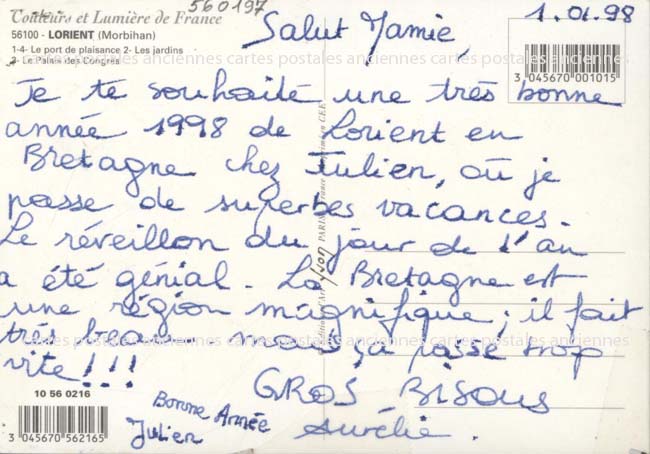 Couleurs et Lumière de France
560197
56100 - LORIENT (Morbihan)
1-4- Le port de plaisance 2- Les jardins
3- Le Palais des Congrès
1.01.98
3 045670 001015
Salut Mamie,
Je te souhaite une très bonne
année 1998 de Lorient en
Bretagne chez Julien, où je
passe de superbes vacances.
Le réveillon du jour de l'an
a été génial. La Bretagne est
une région magnifique ; il fait
très beau mais ça passe trop
vite !!!
GROS BISOUS
Aurélie.
Bonne Année
Julien
10 56 0216
3 045670 562165
cartes postales anciennes cartes postales anciennes cartes postales anciennes
cartes postales anciennes cartes postales anciennes cartes postales anciennes